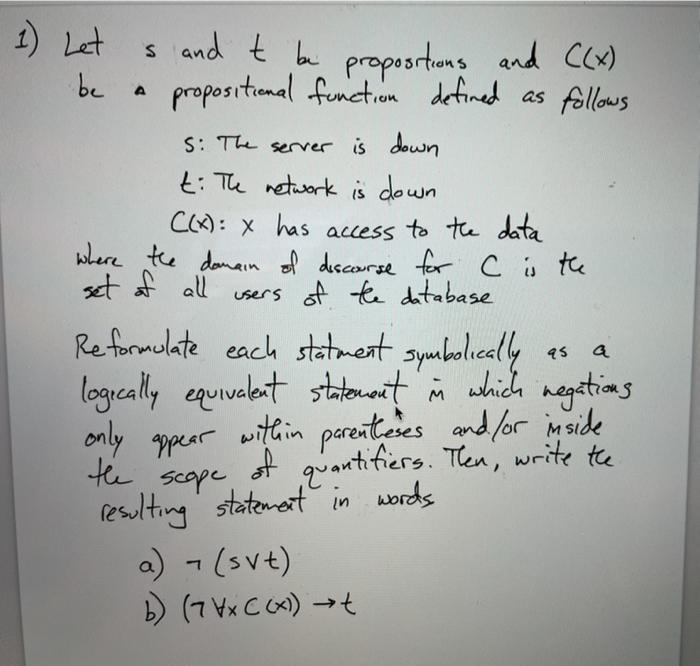 1) Let s and t be propositions and C(x)
be a propositional function defined as follows
s: The server is down
t: The network is down
C(x): x has access to the data
where the domain of discourse for C is the
set of all users of the database
Reformulate each statment symbolically as a
logically equivalent statement in which negations
only appear within parentheses and/or inside
the scope of quantifiers. Then, write the
resulting statement in words
a) ¬ (s∨t)
b) (¬ ∀x C(x)) → t